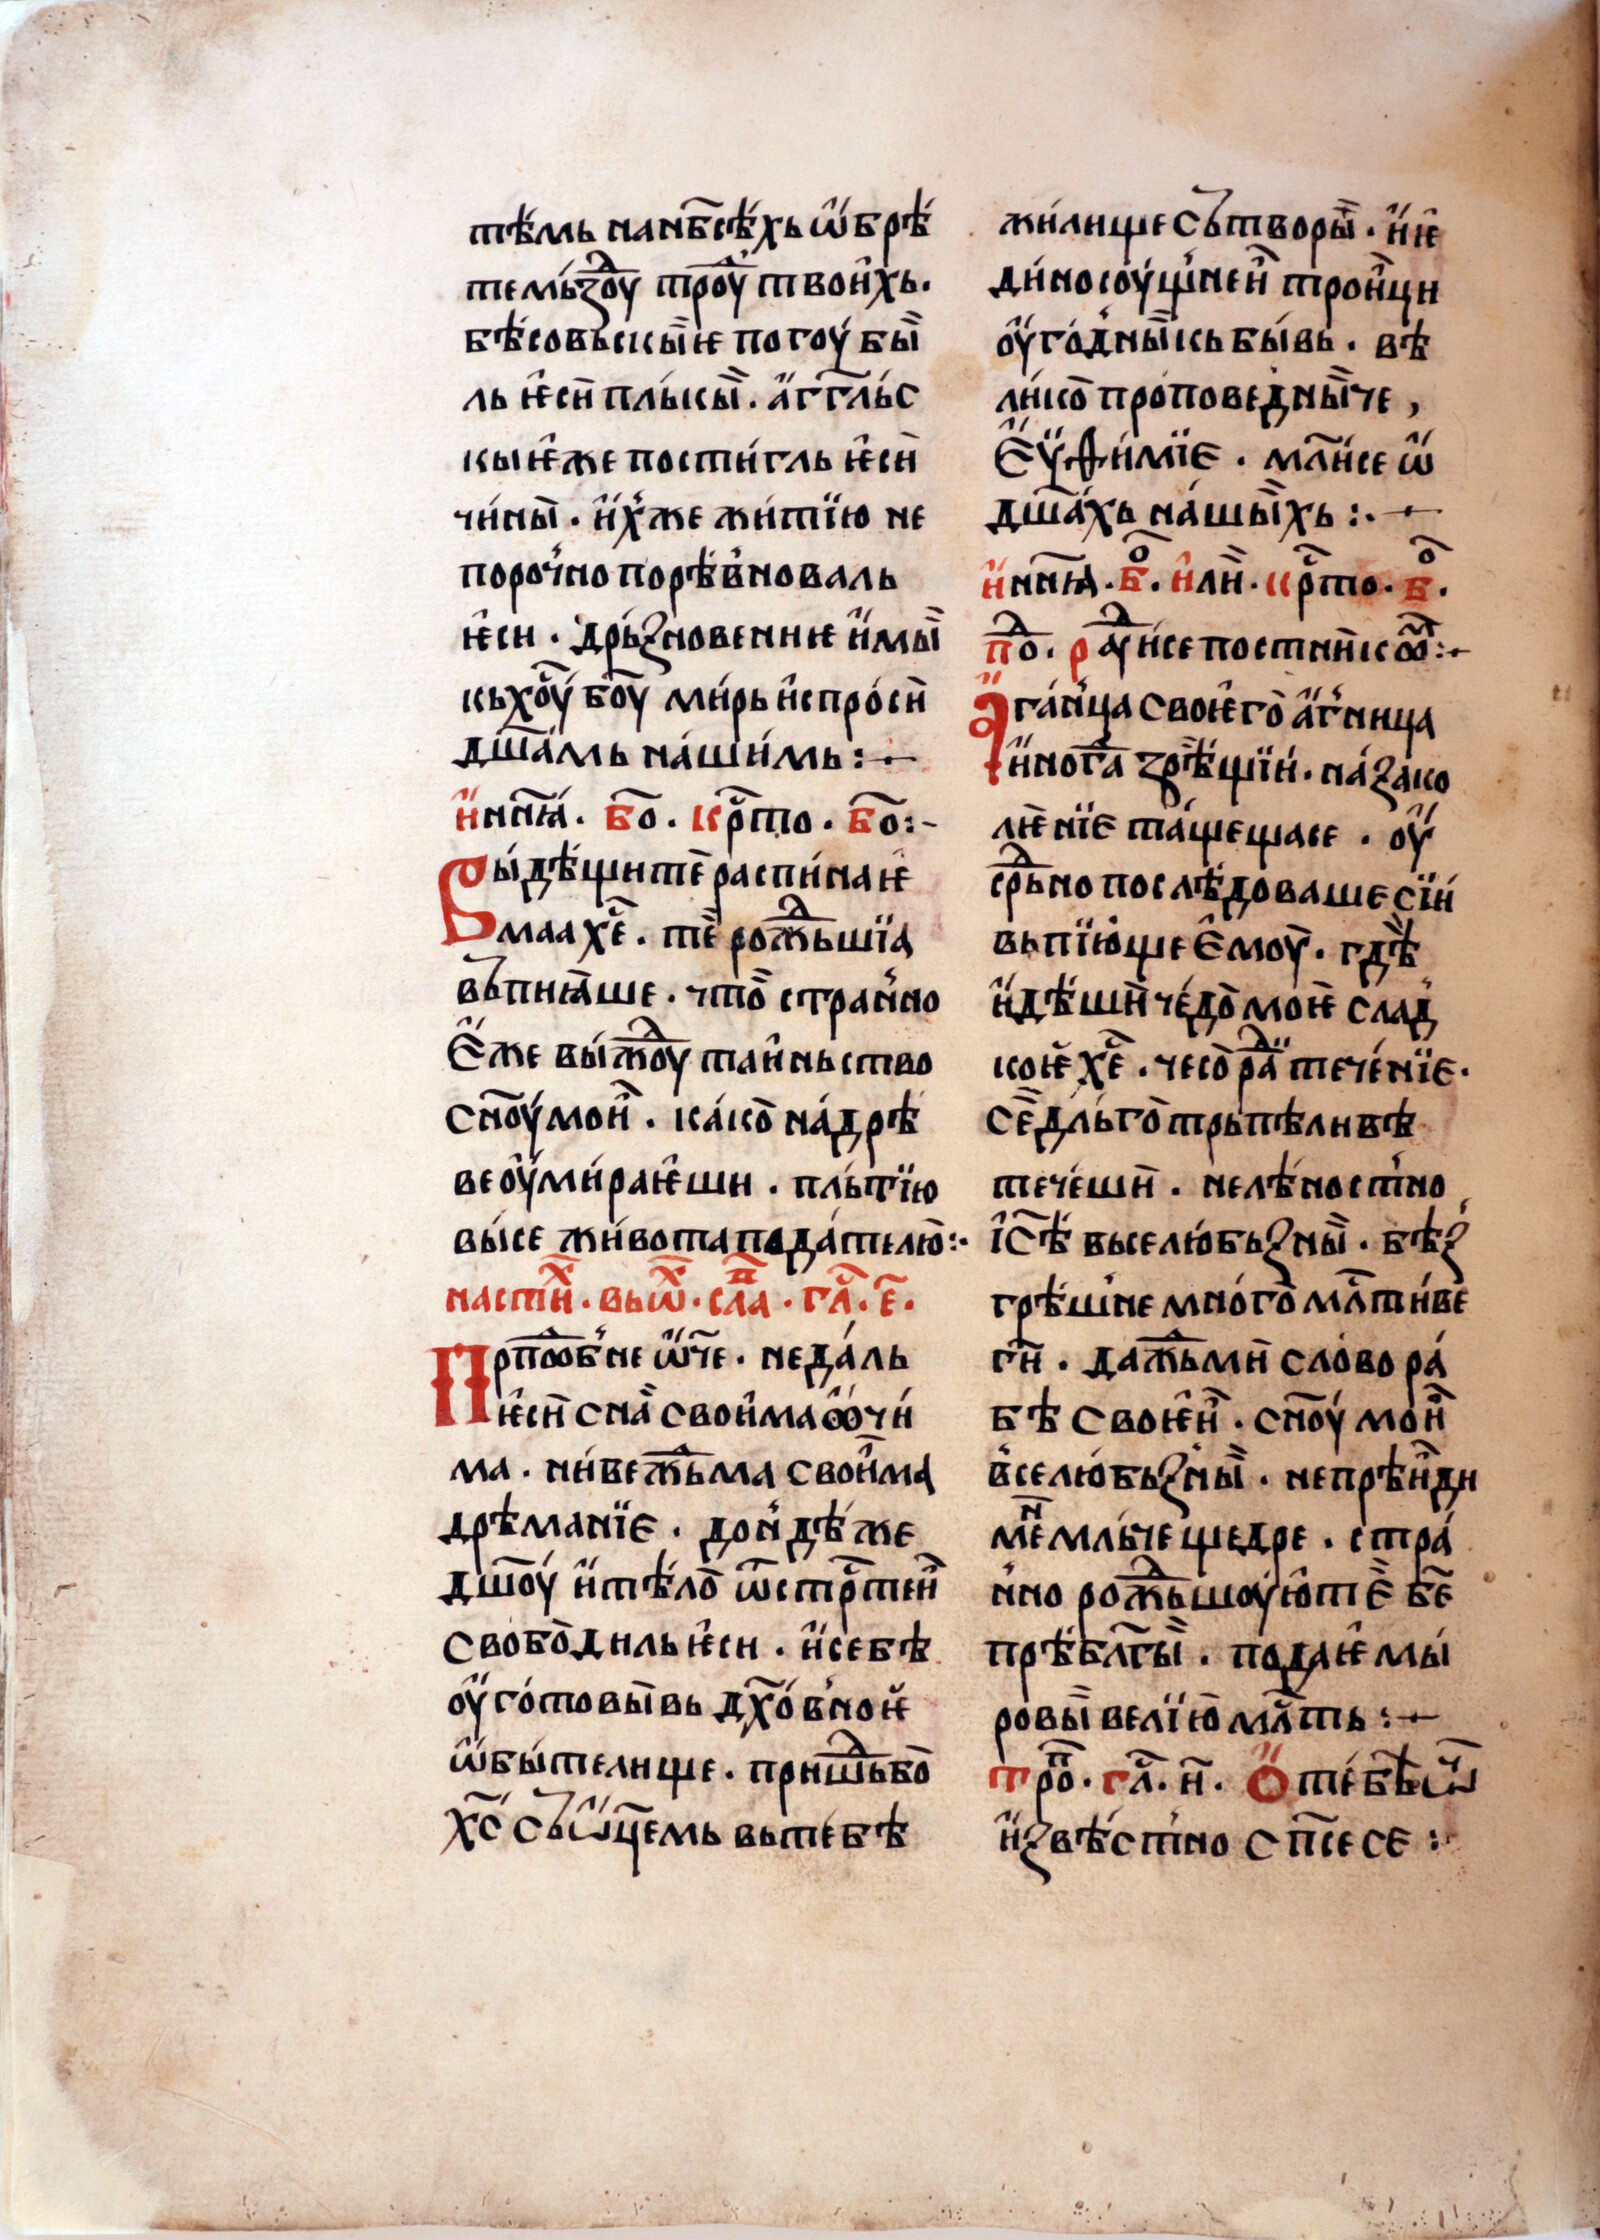 тѣ́мь намв҃сѣ́хь ѡ҆́брѣ́
темь́з̾оу тро́у твои҆́хь.
бѣ́совьскы́ѥ погоу́бы̏
ль ѥ҆си̏ пль́кы̏. а҆́гг҃льс
кыѥ҆́же пости́гль ѥ҆си̏
чи́ны̏. и҆́хже житїю не
поро́чно порѣ́вноваль
ѥ҆си. дрь́зновенниѥ и҆́мы̏
кьхо҃у́ бо҃у ми́рь и҆спро́си̏
дш҃а́мь на́ши́мь:-
и҆́нн҃ꙗ. б҃о. кр҃то. б҃о:-
Вы́дѣ́щите̏ распи́наѥ҆
маа х҃е. те̏ рожⷣьшїа
вьпиꙗ́ше. что̏ стра́нно
Є҆́же вы́жⷣоу таи҆ньство
сн҃оу́мои̏. ка́ко̏ на́дрѣ́
веоу҆́ми́раѥ҆ши. пль́тїю
вы́се живота пода́телю̏:.
настиⷯ. вьѡⷯ. слаⷡ. гл҃. є҃.
Прпⷣобне ѡ҆́ч҃е. неда́ль
ѥ҆си̏ сна̏ свои҆маꙭ҆чи́
ма. ни́вежⷣьма свои҆ма
дрѣ́манїє. до́ндѣ́же
дш҃оу́ и҆́тѣ́ло̏ ѿстр҃теи̏
свобо̏диль ѥ҆си. и҆́себѣ
оу҆́го́товы̏вь дх҃о́вноѥ҆
ѡ҆́бы́телище. пришⷣьбо̏
хс҃ сьѡ҆́ц҃емь вьтебѣ
жи́лище сьтворы̏. и҆́ѥ҆
ди́носоу́щнеи̏ трои҆ци
оу҆́го́дны̏кь бы́вь. вѣ
ли́ко̏ про́пове́дны̏че,
Є҆́ѵ̈ѳи́мїє. мл҃и́се ѡ҆́
дш҃а́хь на́шы̏хь:.-
и҆́нн҃ꙗ. бⷪ҃. и҆́ли̏. кр҃то. бⷪ҃.
поⷣ. раⷣу́исе постни̏кѡⷨ:-
Ꙗга́нца своѥ҆го̏ а҆́гница
и҆́ногⷣа зрѣ̏щїи́. на́зако
лѥ҆нїє та́щещасе. оу҆́
срⷣьно послѣ́доваше сїи́
вьпїю́ще є҆моу̏. гдѣ̏
и҆́дѣ́ши̏ че́до̏ моѥ҆ слад
коѥ҆ х҃е. чесо̏ раⷣ тече́нїє.
се̏ дль́го̏ трьпѣливѣ
тече́ши̏. нелѣ́ностно
і҆с҃ѣ вьселю́бьзны̏. бѣз
грѣ́шне мно́го̏ мл҃тиве
ги҃. дажⷣьми̏ сло́во ра́
бѣ своѥ҆и̏. сн҃оу́ мои̏
вселю́бьзны̏. непрѣи҆ди
мн҃е мль́че щедре. стра́
нно рожⷣьшоую҆те̏ б҃е
прѣ́бл҃гы̏. по́даѥ҆ мы́
ровы̏ велїю̏ мл҃ть:-
троⷫ. гл҃. и҃. Ѻ҆́те́бѣѡ҆ⷱ
и҆́звѣ́стно с п҃се се: